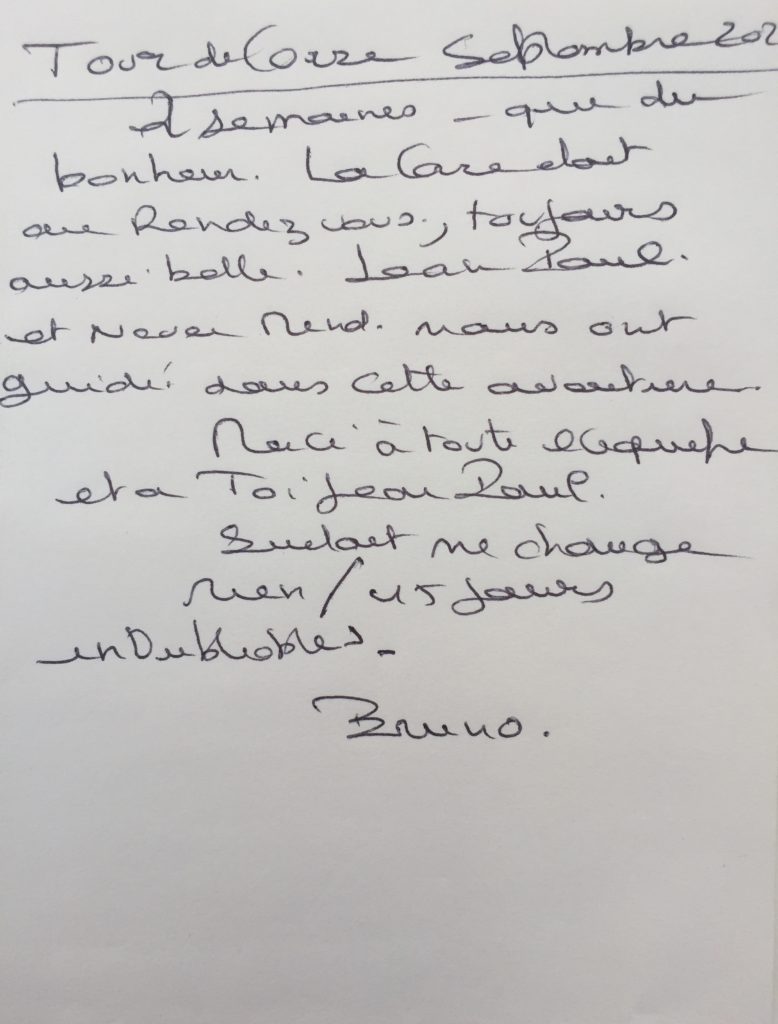 Tour de Corse Septembre 202
2 semaines - que du
bonheur. La Corse etait
au Rendez vous, toujours
aussi belle. Jean Paul.
et Never Mind. nous ont
guidé dans cette aventure.
Merci à toute l'equipe
et a Toi Jean Paul.
Surtout ne change
rien / 15 jours
inoubliables -
Bruno.